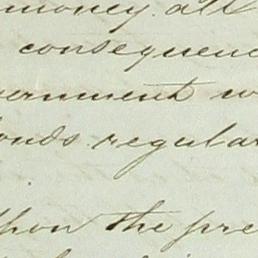 money. all
consequenc
vernment w
onds regular
pon the pre